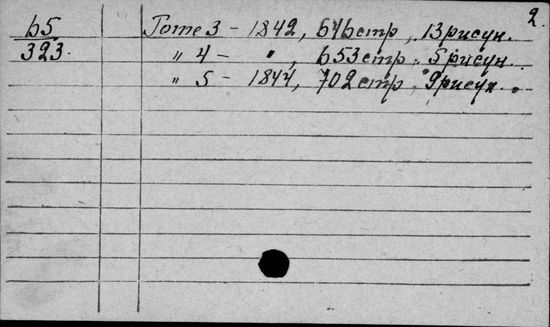 2.
b5 Tome 3 - 1842, 646 стр, 13 рисун.
323. " 4 - ", 653 стр. 5 рисун.
" 5 - 1844, 702 стр. 9 рисун.